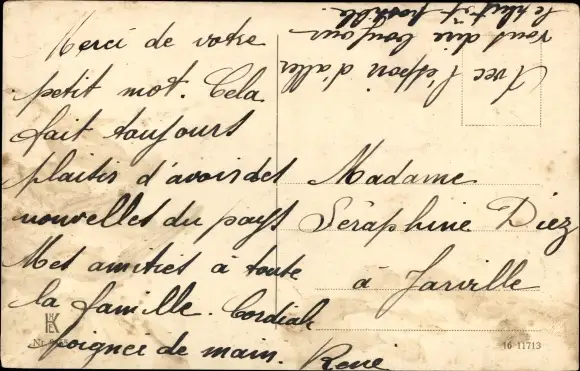 Merci de votre
petit mot. Cela
fait toujours
plaisir d'avoir des
nouvelles du pays
Mes amitiés à toute
la famille. Cordiale
poignée de main. René
Avec l'espoir d'aller
vous dire bonjour
le plus tôt possible.
Madame
Séraphine Diez
à Jarville
HKE
Nr.
16 11713